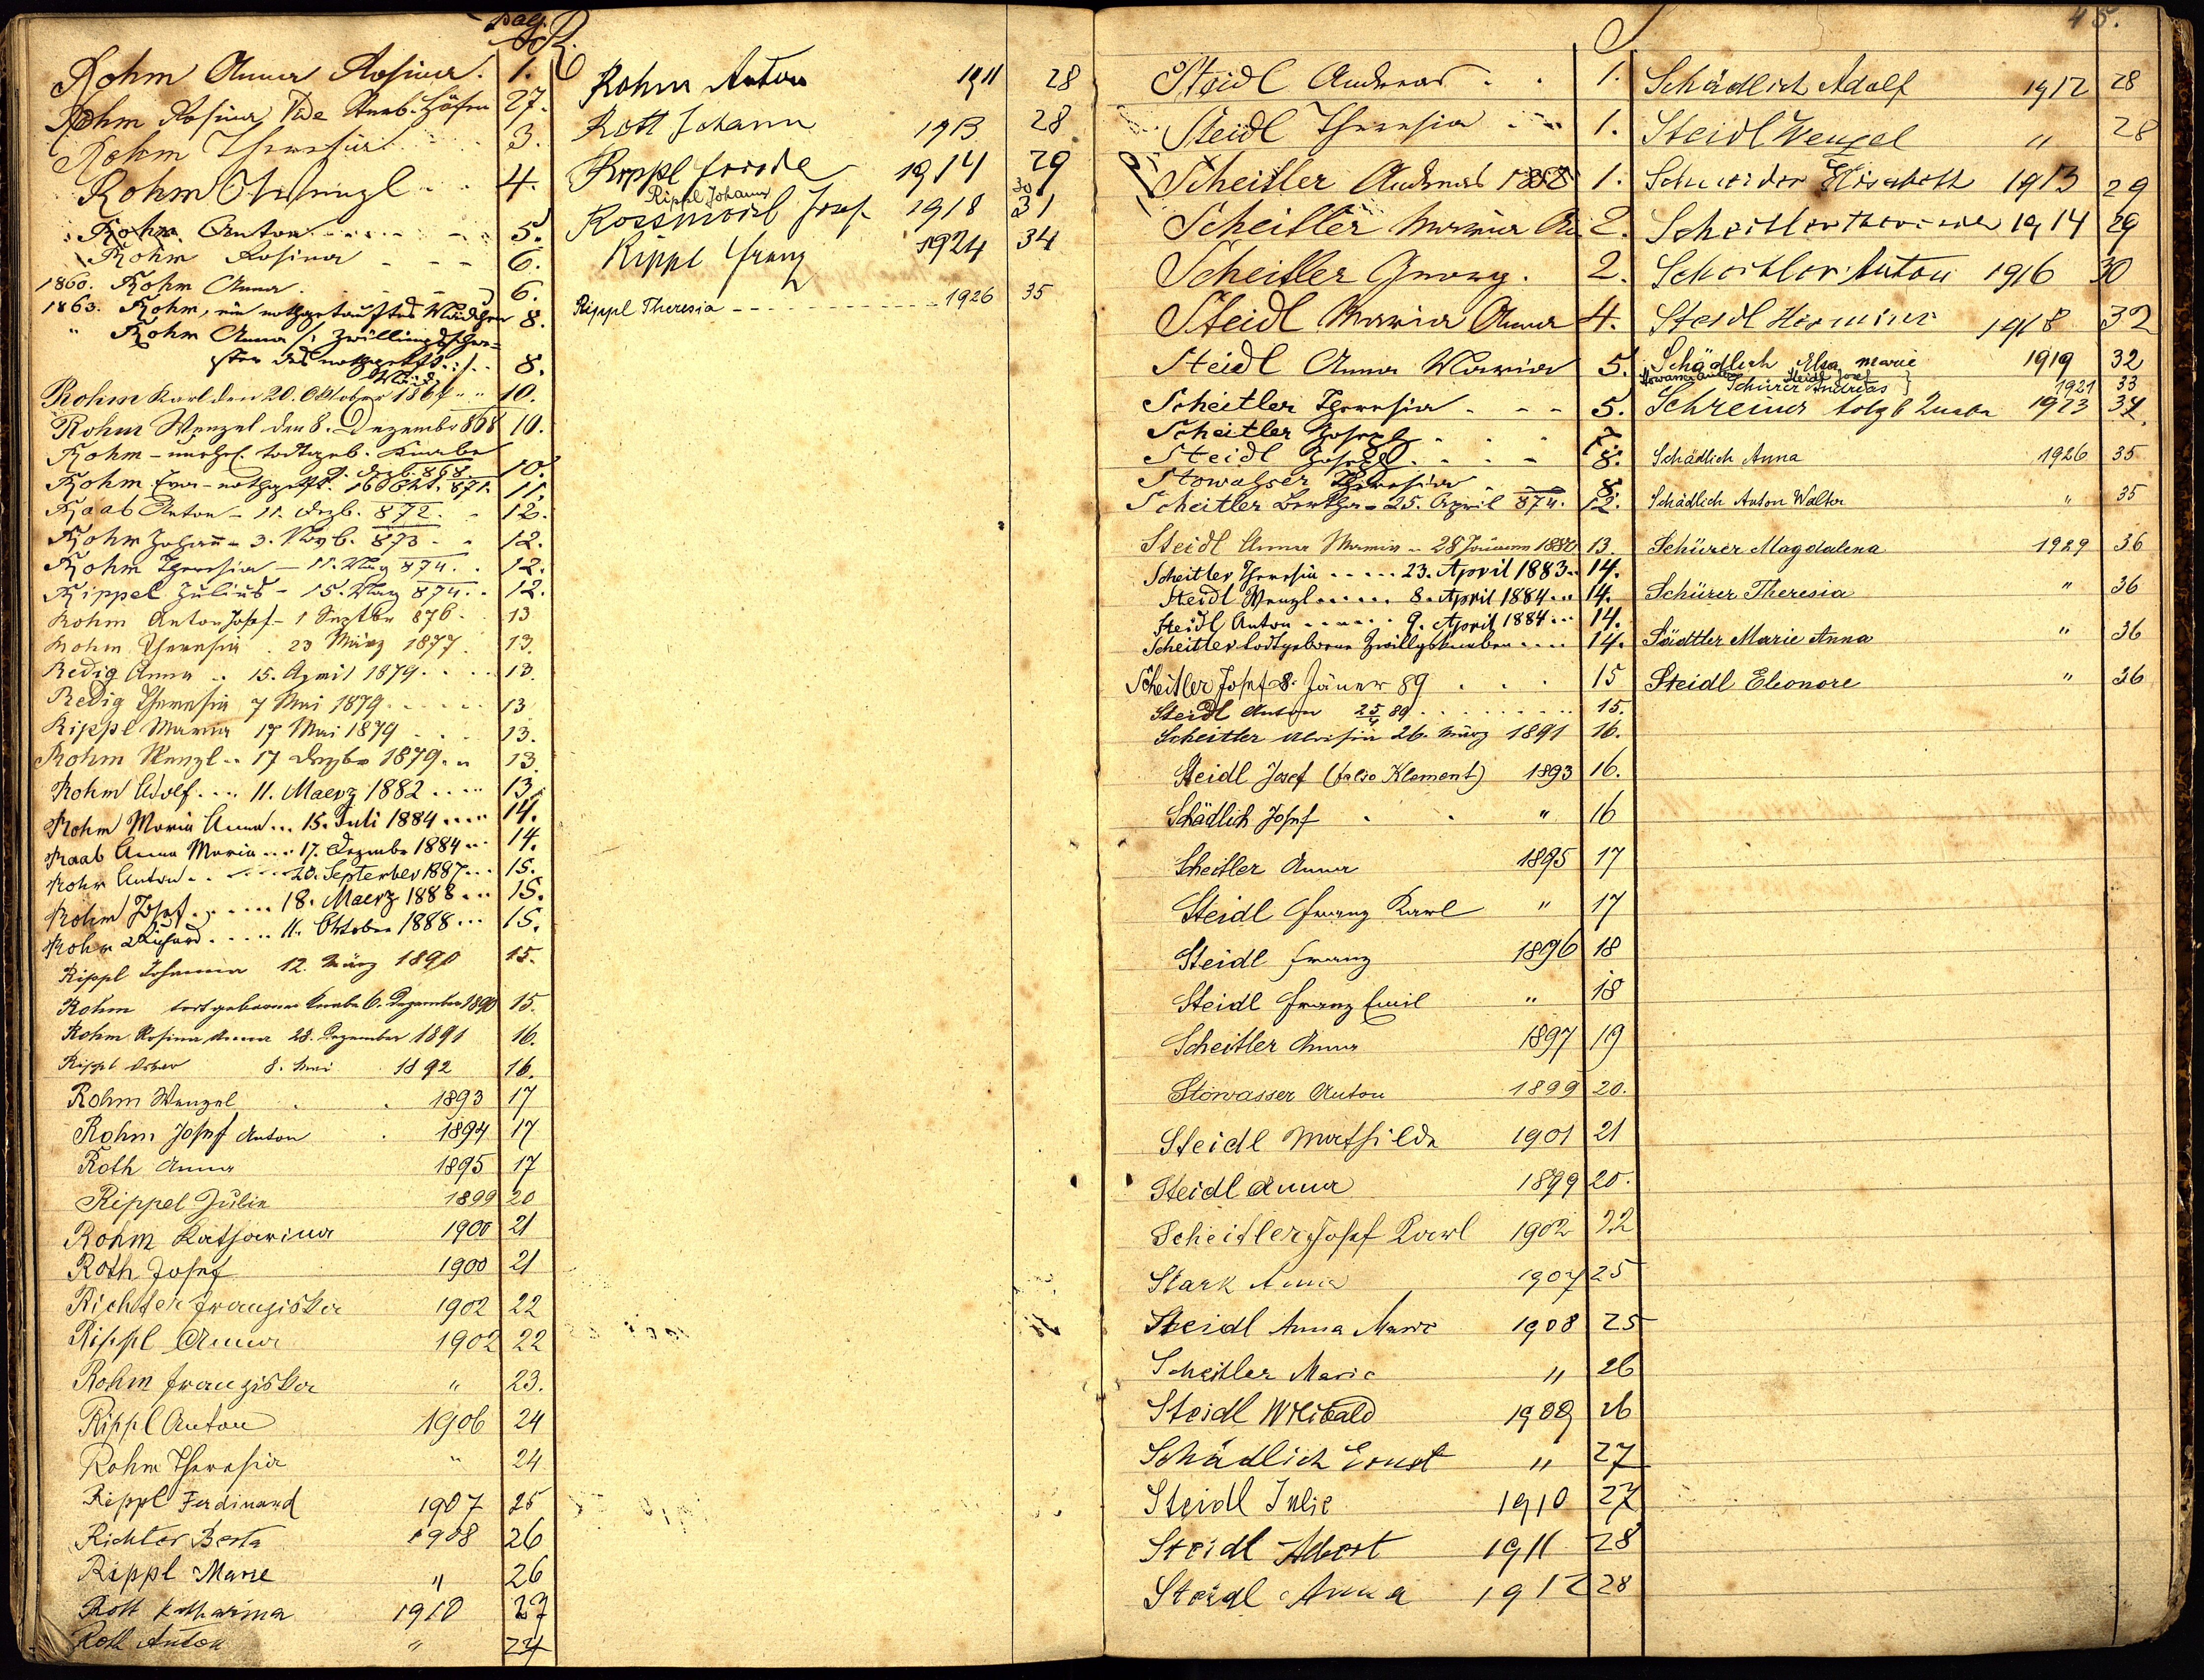 pag.
R.
Rohm Anna Rosina. 1.
Rohm Rosina Vide 27.
Rohm Theresia 3.
Rohm Wenzl 4.
Rohm Anton 5.
Rohm Rosina 6.
1860. Rohm Anna 6.
1863. Rohm, ein nothgetauftes Mädchen 8.
" Rohm Anna /: Zwillingsschwe=
ster des nothgetft. :/ 8.
Mäd.
Rohm Karl den 20. Oktober 186 10.
Rohm Wenzel den 8. Dezember 868 10.
Rohm - unehel. todtgeb. Knabe
Dezb. 868 10.
Rohm Eva - nothgetft. 16 Okt. 871. 11.
Raab Anton - 11. Dezb. 872. 12.
Rohm Johann - 3. Novb. 873 12.
Rohm Theresia - 11. May 874. 12.
Rippel Julius - 15. May 874. 12.
Rohm Anton Josef - 1 Septbr 876 13
Rohm Theresia 23 März 1877 13.
Redig Anna 15. April 1879 13.
Redig Theresia 7 Mai 1879 13
Rippl Maria 17 Mai 1879 13.
Rohm Wenzl 17 Dezbr 1879 13.
Rohm Adolf 11. Maerz 1882 13.
Rohm Maria Anna 15. Juli 1884 14.
Raab Anna Maria 17. Dezember 1884 14.
Rohm Anton 20. September 1887 15.
Rohm Josef 18. Maerz 1888 15.
Rohm Richard 11. Oktober 1888 15.
Rippl Johanna 12. März 1890 15.
Rohm todtgeborener Knabe 6. Dezember 1890 15.
Rohm Rosina Anna 28. Dezember 1891 16.
Rippl 8. Mai 1892 16.
Rohm Wenzel 1893 17
Rohm Josef Anton 1894 17
Roth Anna 1895 17
Rippel Julie 1899 20
Rohm Katharina 1900 21
Roth Josef 1900 21
Richter Franziska 1902 22
Rippl Anna 1902 22
Rohm Franziska " 23.
Rippl Anton 1906 24
Rohm Theresia " 24
Rippl Ferdinand 1907 25
Richter Berta 1908 26
Rippl Marie " 26
Rott Katharina 1910 27
Roth Anton "
Rohm Anton 1911 28
Rott Johann 1913 28
Rippl 1914 29
Rippl Johann 30
Rossmeisl Josef 1918 31
Rippl Franz 1924 34
Rippl Theresia 1926 35
S
45.
Steidl Andreas 1.
Steidl Theresia 1.
Scheitler Andreas 1858 1.
Scheitler Maria An 2.
Scheitler Georg. 2.
Steidl Maria Anna 4.
Steidl Anna Maria 5.
Scheitler Theresia 5.
Scheitler Joseph 7.
Steidl Joseph 8.
Stowasser Theresia 8.
Scheitler Bertha - 25. April 874. 12.
Steidl Anna Maria 28 Jänner 1880 13.
Scheitler Theresia 23. April 1883 14.
Steidl Wenzl 8. April 1884 14.
Steidl Anton 9. April 1884 14.
Scheitler todtgeborene Zwillgsknaben 14.
Scheitler Josef 8. Jänner 89 15
Steidl Anton 25/4 89 15.
Scheitler Aloisia 26. März 1891 16.
Steidl Josef (falso Klement) 1893 16.
Schädlich Josef " 16
Scheitler Anna 1895 17
Steidl Franz Karl " 17
Steidl Franz 1896 18
Steidl Franz Emil " 18
Scheitler Anna 1897 19
Stowasser Anton 1899 20.
Steidl Mathilde 1901 21
Steidl Anna 1899 20.
Scheitler Josef Karl 1902 22
Stark Anna 1907 25
Steidl Anna Marie 1908 25
Scheitler Marie " 26
Steidl Willibald 1909 26
Schädlich Ernst " 27
Steidl Julie 1910 27
Steidl Albert 1911 28
Steidl Anna 1912 28
Schädlich Adolf 1912 28
Steidl Wenzel " 28
Schneider Elisabeth 1913 29
Scheitler Theresie 1914 29
Scheitler Anton 1916 30
Steidl Hermine 1918 32
Schädlich Elsa Marie 1919 32
Stowasser Anton Steidl Josef
Schürer Andreas } 1921 33
Schreiner todgeb Knabe 1923 34.
Schädlich Anna 1926 35
Schädlich Anton Walter " 35
Schürer Magdalena 1929 36
Schürer Theresia " 36
Södtler Marie Anna " 36
Steidl Eleonore " 36